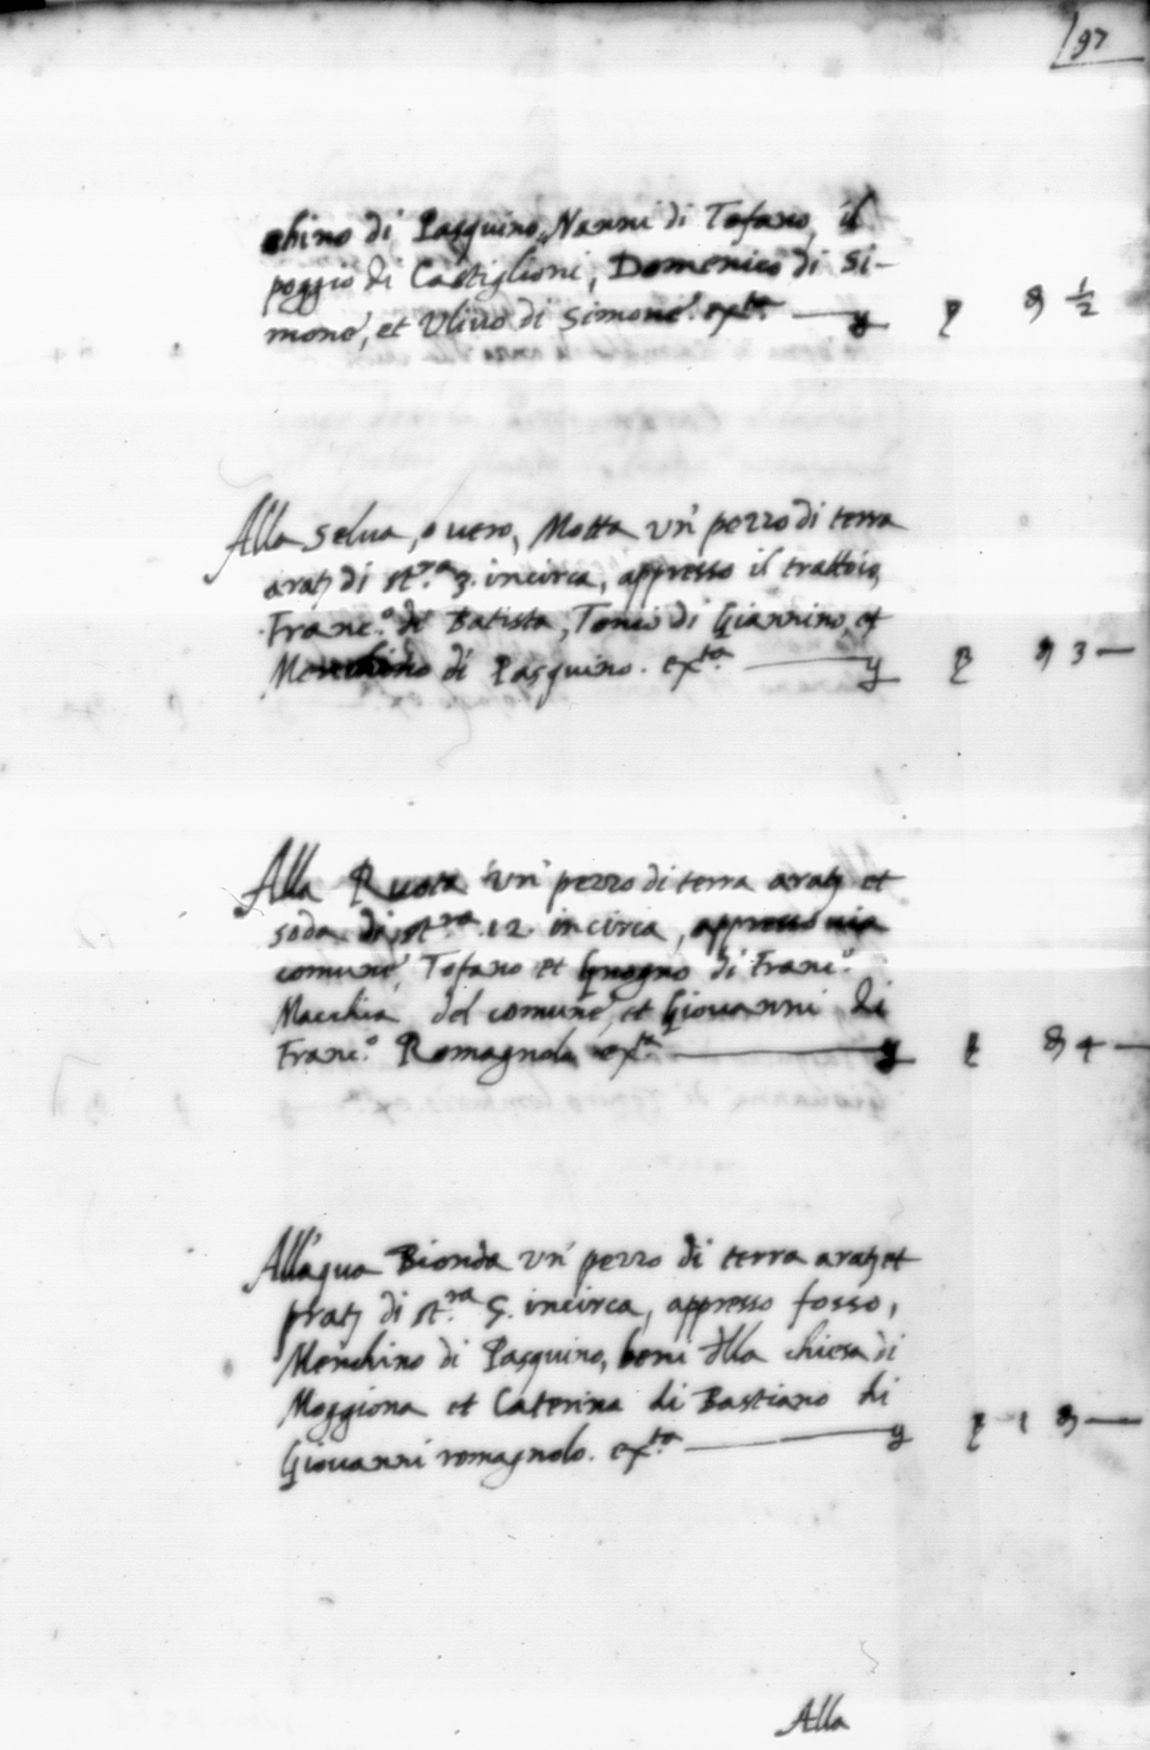 97
chino di Pasquino, Nanni di Tofano, il
poggio di Castiglioni, Domenico di Si-
mone, et Ulivo di Simone. ex.ta ½
Alla Selua, o uero, Motta un' pezzo di terra
arat. di st.ra 3. incirca, appresso il trattoio,
Franc.o di Batista, Tonio di Giannino, et
Menchino di Pasquino. ex.ta 3 —
Alla Ruota un' pezzo di terra arat. et
soda di st.ra 12. incirca, appresso uia
comune, Tofano et Gnogno di Franc.o
Macchia del comune, et Giouanni di
Franc.o Romagnolo ex.ta 4 —
All'aqua Bionda un' pezzo di terra arat. et
prat. di st.ra 5. incirca, appresso fosso,
Menchino di Pasquino, beni della chiesa di
Moggiona et Caterina di Bastiano di
Giouanni romagnolo. ex.ta 1 —
Alla